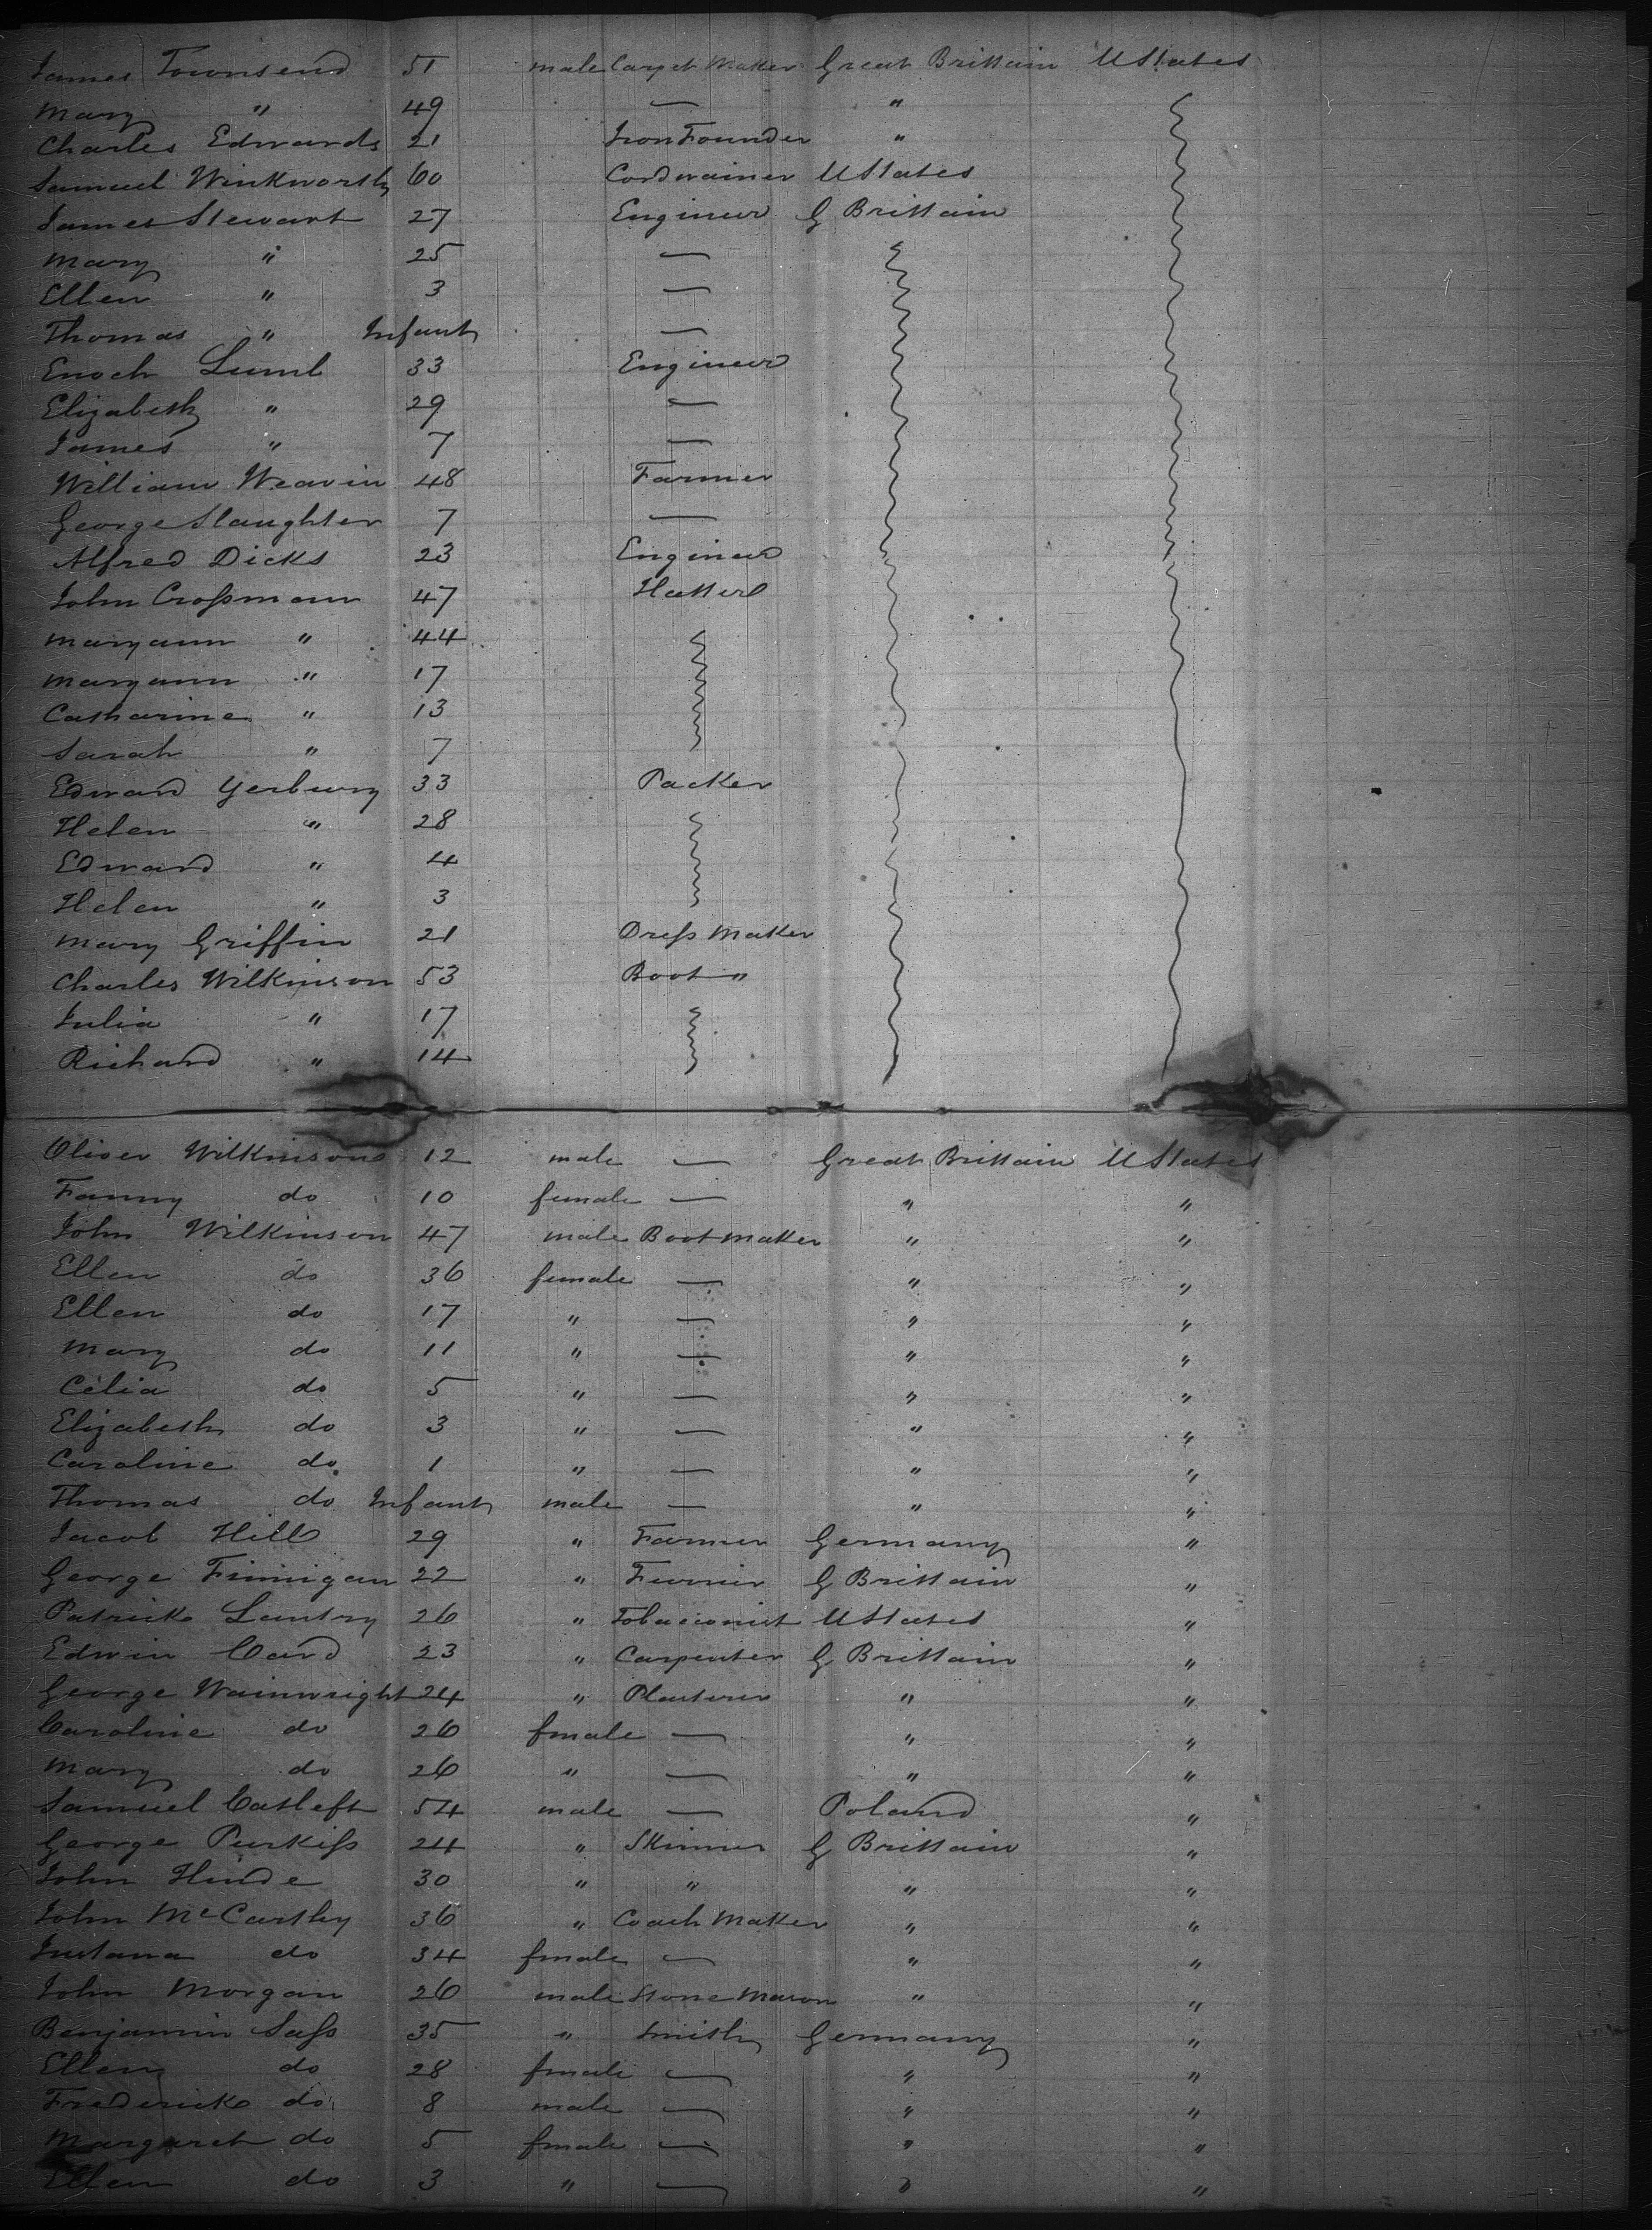 James Townsend 51 male Carpet Maker Great Brittain U States
Mary " 49 — "
Charles Edwards 21 Iron Founder "
Samuel Winkworth 60 Cordwainer U States
James Stewart 27 Engineer G Brittain
Mary " 25 —
Ellen " 3 —
Thomas " Infant —
Enoch Lumb 33 Engineer
Elizabeth " 29 —
James " 7 —
William Weavin 48 Farmer
George Slaughter 7 —
Alfred Dicks 23 Engineer
John Crossman 47 Hatter
Maryann " 44
Maryann " 17
Catharine " 13
Sarah " 7
Edward Yerbury 33 Packer
Helen " 28
Edward " 4
Helen " 3
Mary Griffin 21 Dress Maker
Charles Wilkinson 53 Boot "
Julia " 17
Richard " 14
Oliver Wilkinson 12 male — Great Brittain U States
Fanny do 10 female — " "
John Wilkinson 47 male Boot maker " "
Ellen do 36 female — " "
Ellen do 17 " — " "
Mary do 11 " — " "
Celia do 5 " — " "
Elizabeth do 3 " — " "
Caroline do 1 " — " "
Thomas do Infant male — " "
Jacob Hill 29 " Farmer Germany "
George Finnigan 22 " Furrier G Brittain "
Patrick Lantry 26 " Tobacconist U States "
Edwin Card 23 " Carpenter G Brittain "
George Wainwright 24 " Plasterer " "
Caroline do 26 fmale — " "
Mary do 26 " — " "
Samuel Catleft 54 male — Poland "
George Purkiss 24 " Skinner G Brittain "
John Hinde 30 " " " "
John McCarthy 36 " Coach Maker " "
do 34 fmale — " "
John Morgan 26 male Stone Mason " "
Benjamin Sass 35 " Smith Germany "
Ellen do 28 fmale — " "
Frederick do 8 male — " "
Margaret do 5 fmale — " "
Ellen do 3 " — " "